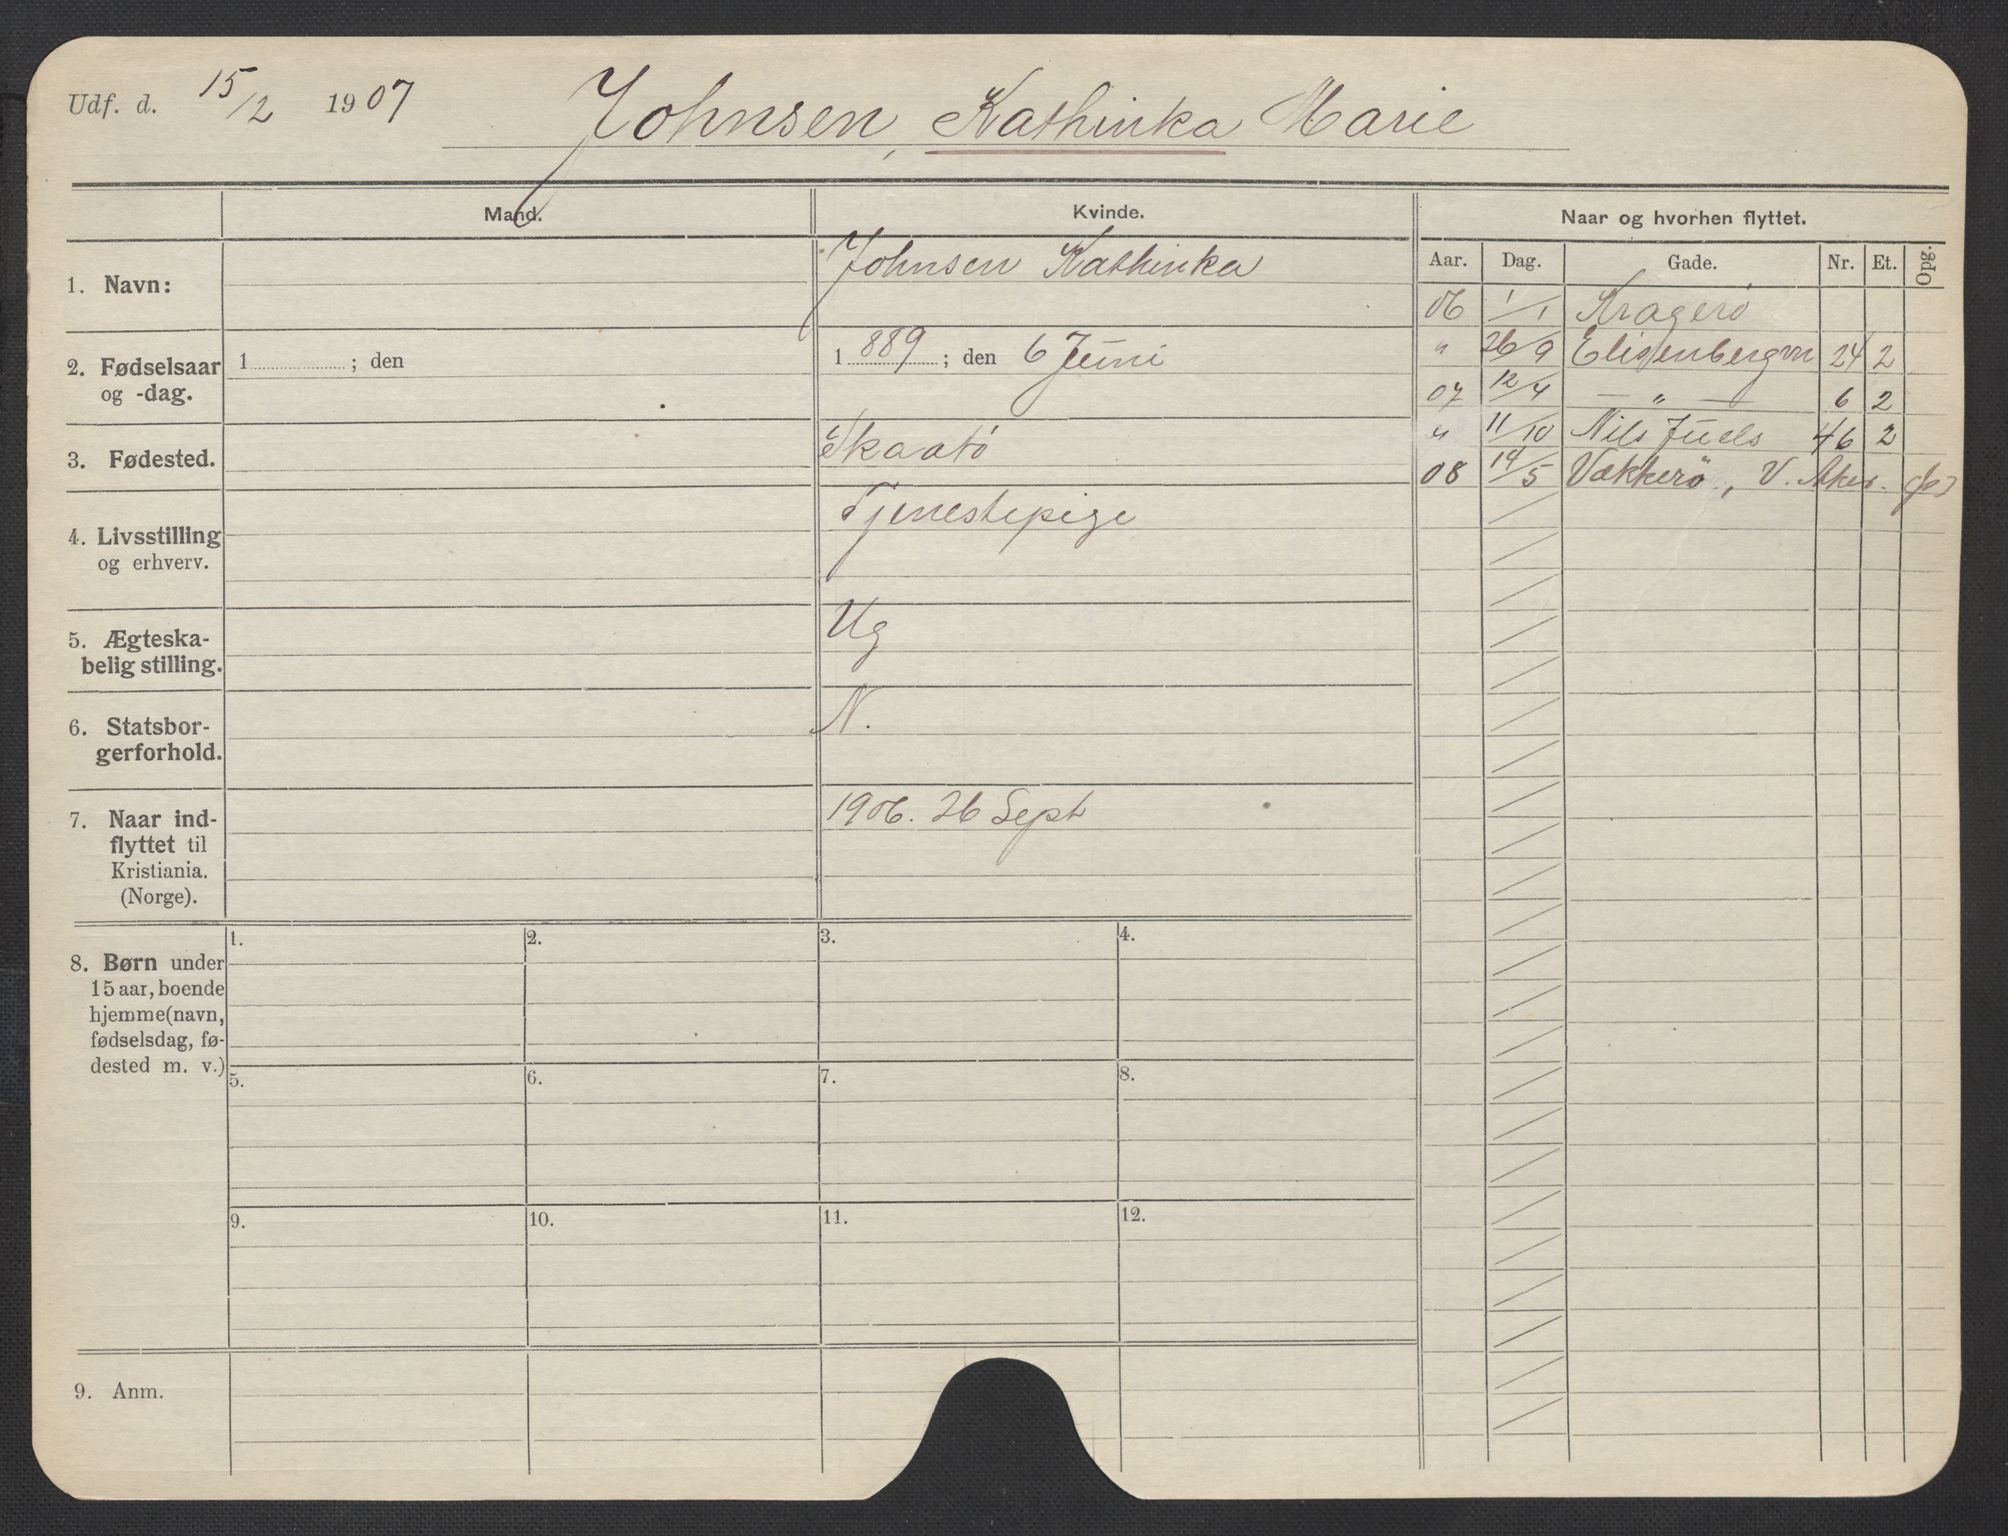 Udf. d. 15/2 1907 Johnsen, Kathinka Marie
Mand. Kvinde. Naar og hvorhen flyttet.
1. Navn: Johnsen Kathinka
2. Fødselsaar og -dag. 1 ; den 1889 ; den 6 Juni
3. Fødested. Skaatö
4. Livsstilling og erhverv. Tjenestepige
5. Ægteska-
belig stilling. Ug
6. Statsbor-
gerforhold. N.
7. Naar ind-
flyttet til
Kristiania.
(Norge). 1906. 26 Sept
8. Børn under
15 aar, boende
hjemme (navn,
fødselsdag, fø-
dested m. v.)
1. 2. 3. 4.
5. 6. 7. 8.
9. 10. 11. 12.
9. Anm.
Aar. Dag. Gade. Nr. Et. Opg.
06 1/1 Kragerö
" 26/9 Elisenbergvn 24 2
07 12/4 — " — 6 2
" 11/10 Nils Juels 46 2
08 14/5 Vækkerö, V. Aker.